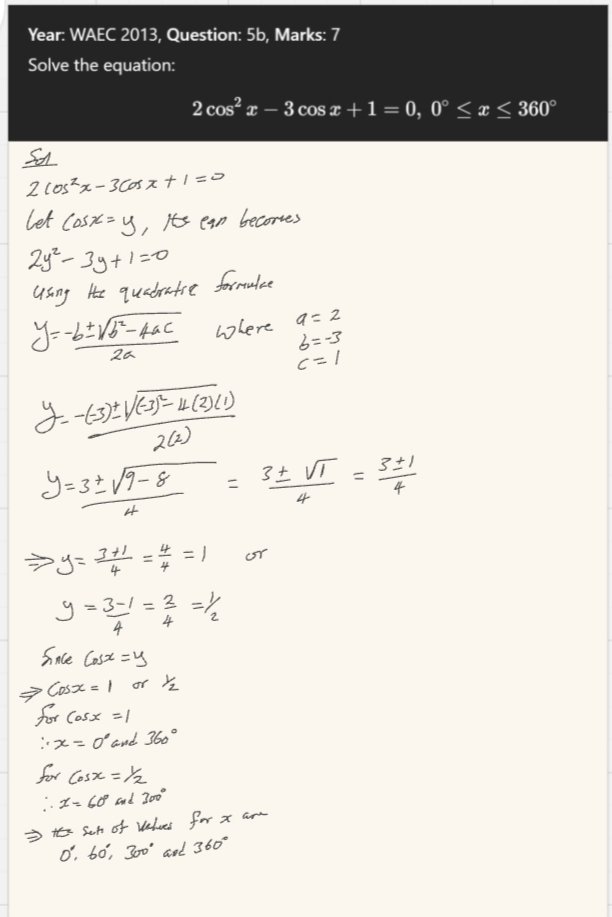 Year: WAEC 2013, Question: 5b, Marks: 7
Solve the equation:
2 cos² x − 3 cos x + 1 = 0, 0° ≤ x ≤ 360°
Sol
2cos²x - 3cosx + 1 = 0
Let cosx = y, the eqn becomes
2y² - 3y + 1 = 0
Using the quadratic formulae
y = -b ± √(b² - 4ac) / 2a where a = 2
b = -3
c = 1
y = -(-3) ± √((-3)² - 4(2)(1)) / 2(2)
y = 3 ± √(9 - 8) / 4 = 3 ± √1 / 4 = 3 ± 1 / 4
⇒ y = 3+1 / 4 = 4/4 = 1 or
y = 3-1 / 4 = 2/4 = 1/2
Since cosx = y
⇒ cosx = 1 or 1/2
for cosx = 1
∴ x = 0° and 360°
for cosx = 1/2
∴ x = 60° and 300°
⇒ the sets of values for x are
0°, 60°, 300° and 360°